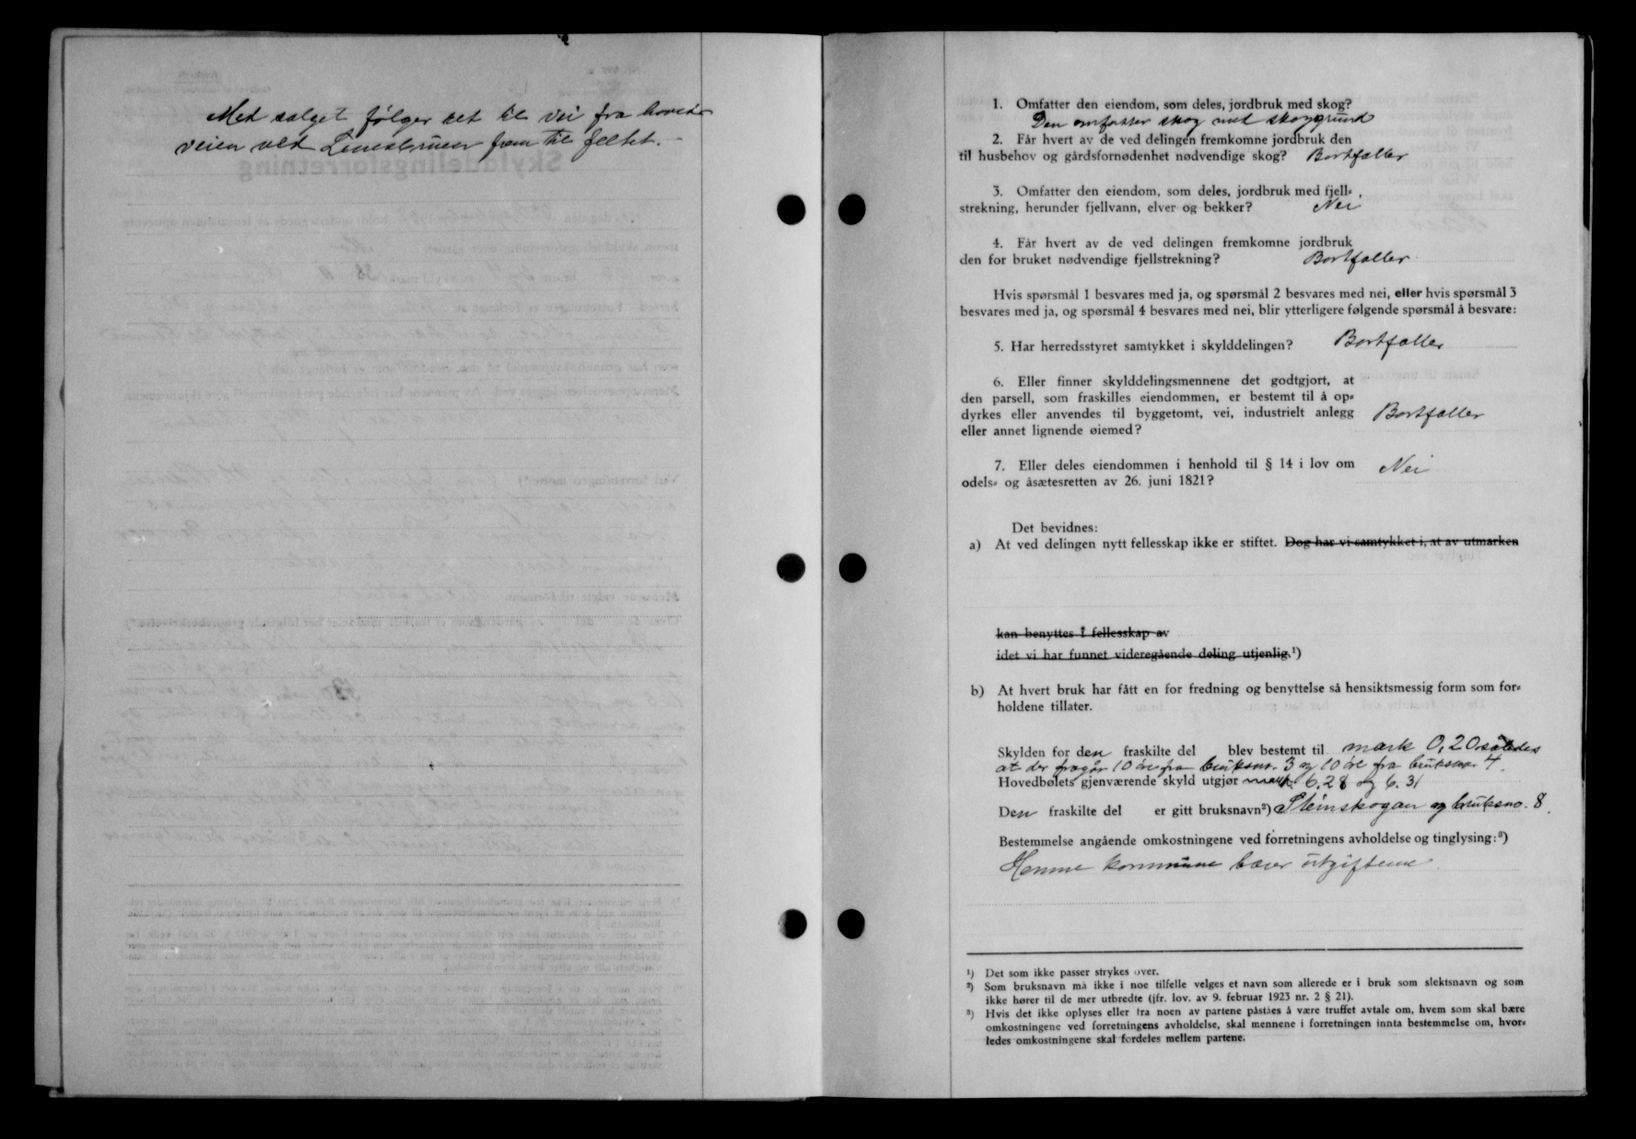 Med salget følger ret til vei fra hoved-
veien ved Lenesbruen fram til feltet. -
1. Omfatter den eiendom, som deles, jordbruk med skog?
Den omfatter skog med skoggrund
2. Får hvert av de ved delingen fremkomne jordbruk den
til husbehov og gårdsfornødenhet nødvendige skog? Bortfaller
3. Omfatter den eiendom, som deles, jordbruk med fjell-
strekning, herunder fjellvann, elver og bekker? Nei
4. Får hvert av de ved delingen fremkomne jordbruk
den for bruket nødvendige fjellstrekning? Bortfaller
Hvis spørsmål 1 besvares med ja, og spørsmål 2 besvares med nei, eller hvis spørsmål 3
besvares med ja, og spørsmål 4 besvares med nei, blir ytterligere følgende spørsmål å besvare:
5. Har herredsstyret samtykket i skylddelingen? Bortfaller
6. Eller finner skylddelingsmennene det godtgjort, at
den parsell, som fraskilles eiendommen, er bestemt til å op-
dyrkes eller anvendes til byggetomt, vei, industrielt anlegg Bortfaller
eller annet lignende øiemed?
7. Eller deles eiendommen i henhold til § 14 i lov om Nei
odels- og åsætesretten av 26. juni 1821?
Det bevidnes:
a) At ved delingen nytt fellesskap ikke er stiftet. Dog har vi samtykket i, at av utmarken
kan benyttes i fellesskap av
idet vi har funnet videregående deling utjenlig.¹)
b) At hvert bruk har fått en for fredning og benyttelse så hensiktsmessig form som for-
holdene tillater.
Skylden for den fraskilte del blev bestemt til mark 0,20 således
at der fragår 10 øre fra bruksnr. 3 og 10 øre fra bruksnr. 4.
Hovedbølets gjenværende skyld utgjør mark 6.28 og 6.31
Den fraskilte del er gitt bruksnavn²) Steinskogan og bruksno. 8.
Bestemmelse angående omkostningene ved forretningens avholdelse og tinglysing:³)
Hemne kommune bærer utgiftene.
¹) Det som ikke passer strykes over.
²) Som bruksnavn må ikke i noe tilfelle velges et navn som allerede er i bruk som slektsnavn og som
ikke hører til de mer utbredte (jfr. lov. av 9. februar 1923 nr. 2 § 21).
³) Hvis det ikke oplyses eller fra noen av partene påståes å være truffet avtale om, hvem som skal bære
omkostningene ved forretningens avholdelse, skal mennene i forretningen innta bestemmelse om, hvor-
ledes omkostningene skal fordeles mellem partene.